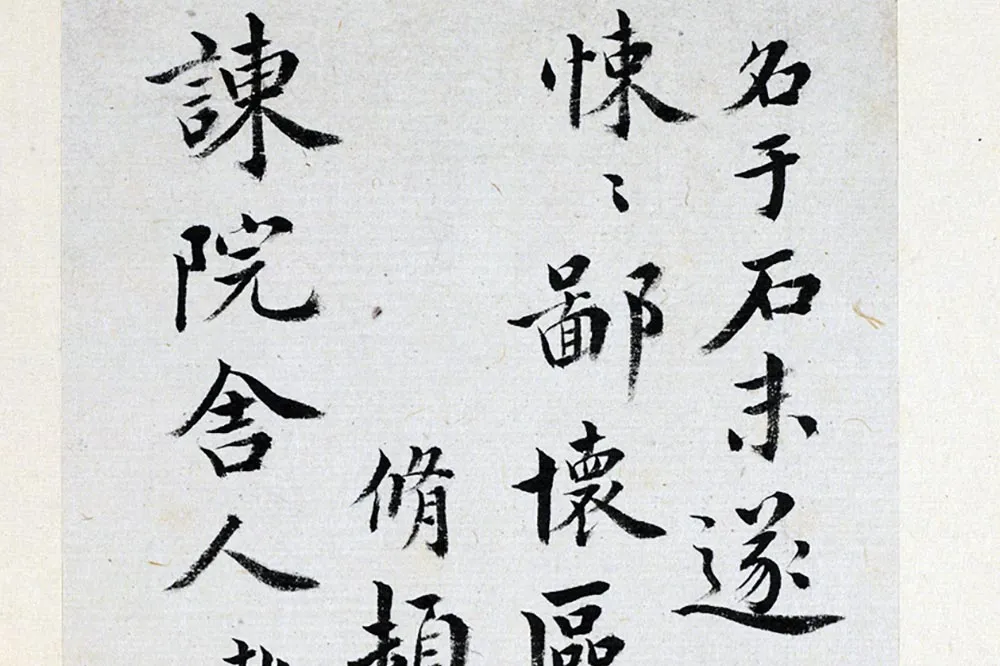 名于石未遂
悚〻鄙懷區
脩頓
諫院舍人